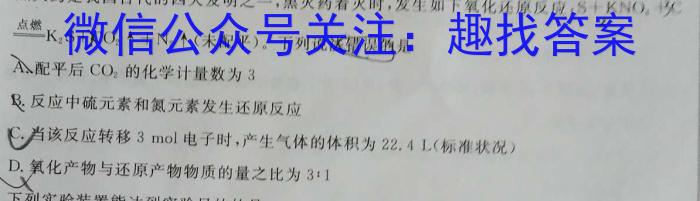 我国古代的四大发明之一,黑火药着火时,发生如下氧化还原反应,S+KNO₃+3C
点燃
K₂S+CO₂↑+N₂↑(未配平)。下列说法错误的是
微信公众号关注:趣找答案
A.配平后CO₂的化学计量数为3
B.反应中硫元素和氮元素发生还原反应
C.当该反应转移3 mol电子时,产生气体的体积为22.4 L(标准状况)
D.氧化产物与还原产物物质的量之比为3∶1
下列实验装置能达到实验目的的是